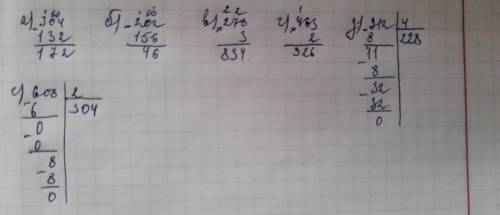 а) - 304
132
172
б) - 202
156
46
в) 2 2
× 278
3
834
г) 1
× 463
2
926
д) - 912 | 4
8 | 228
11
- 8
- 32
32
0
е) - 608 | 2
6 | 304
- 0
0
- 8
8
0